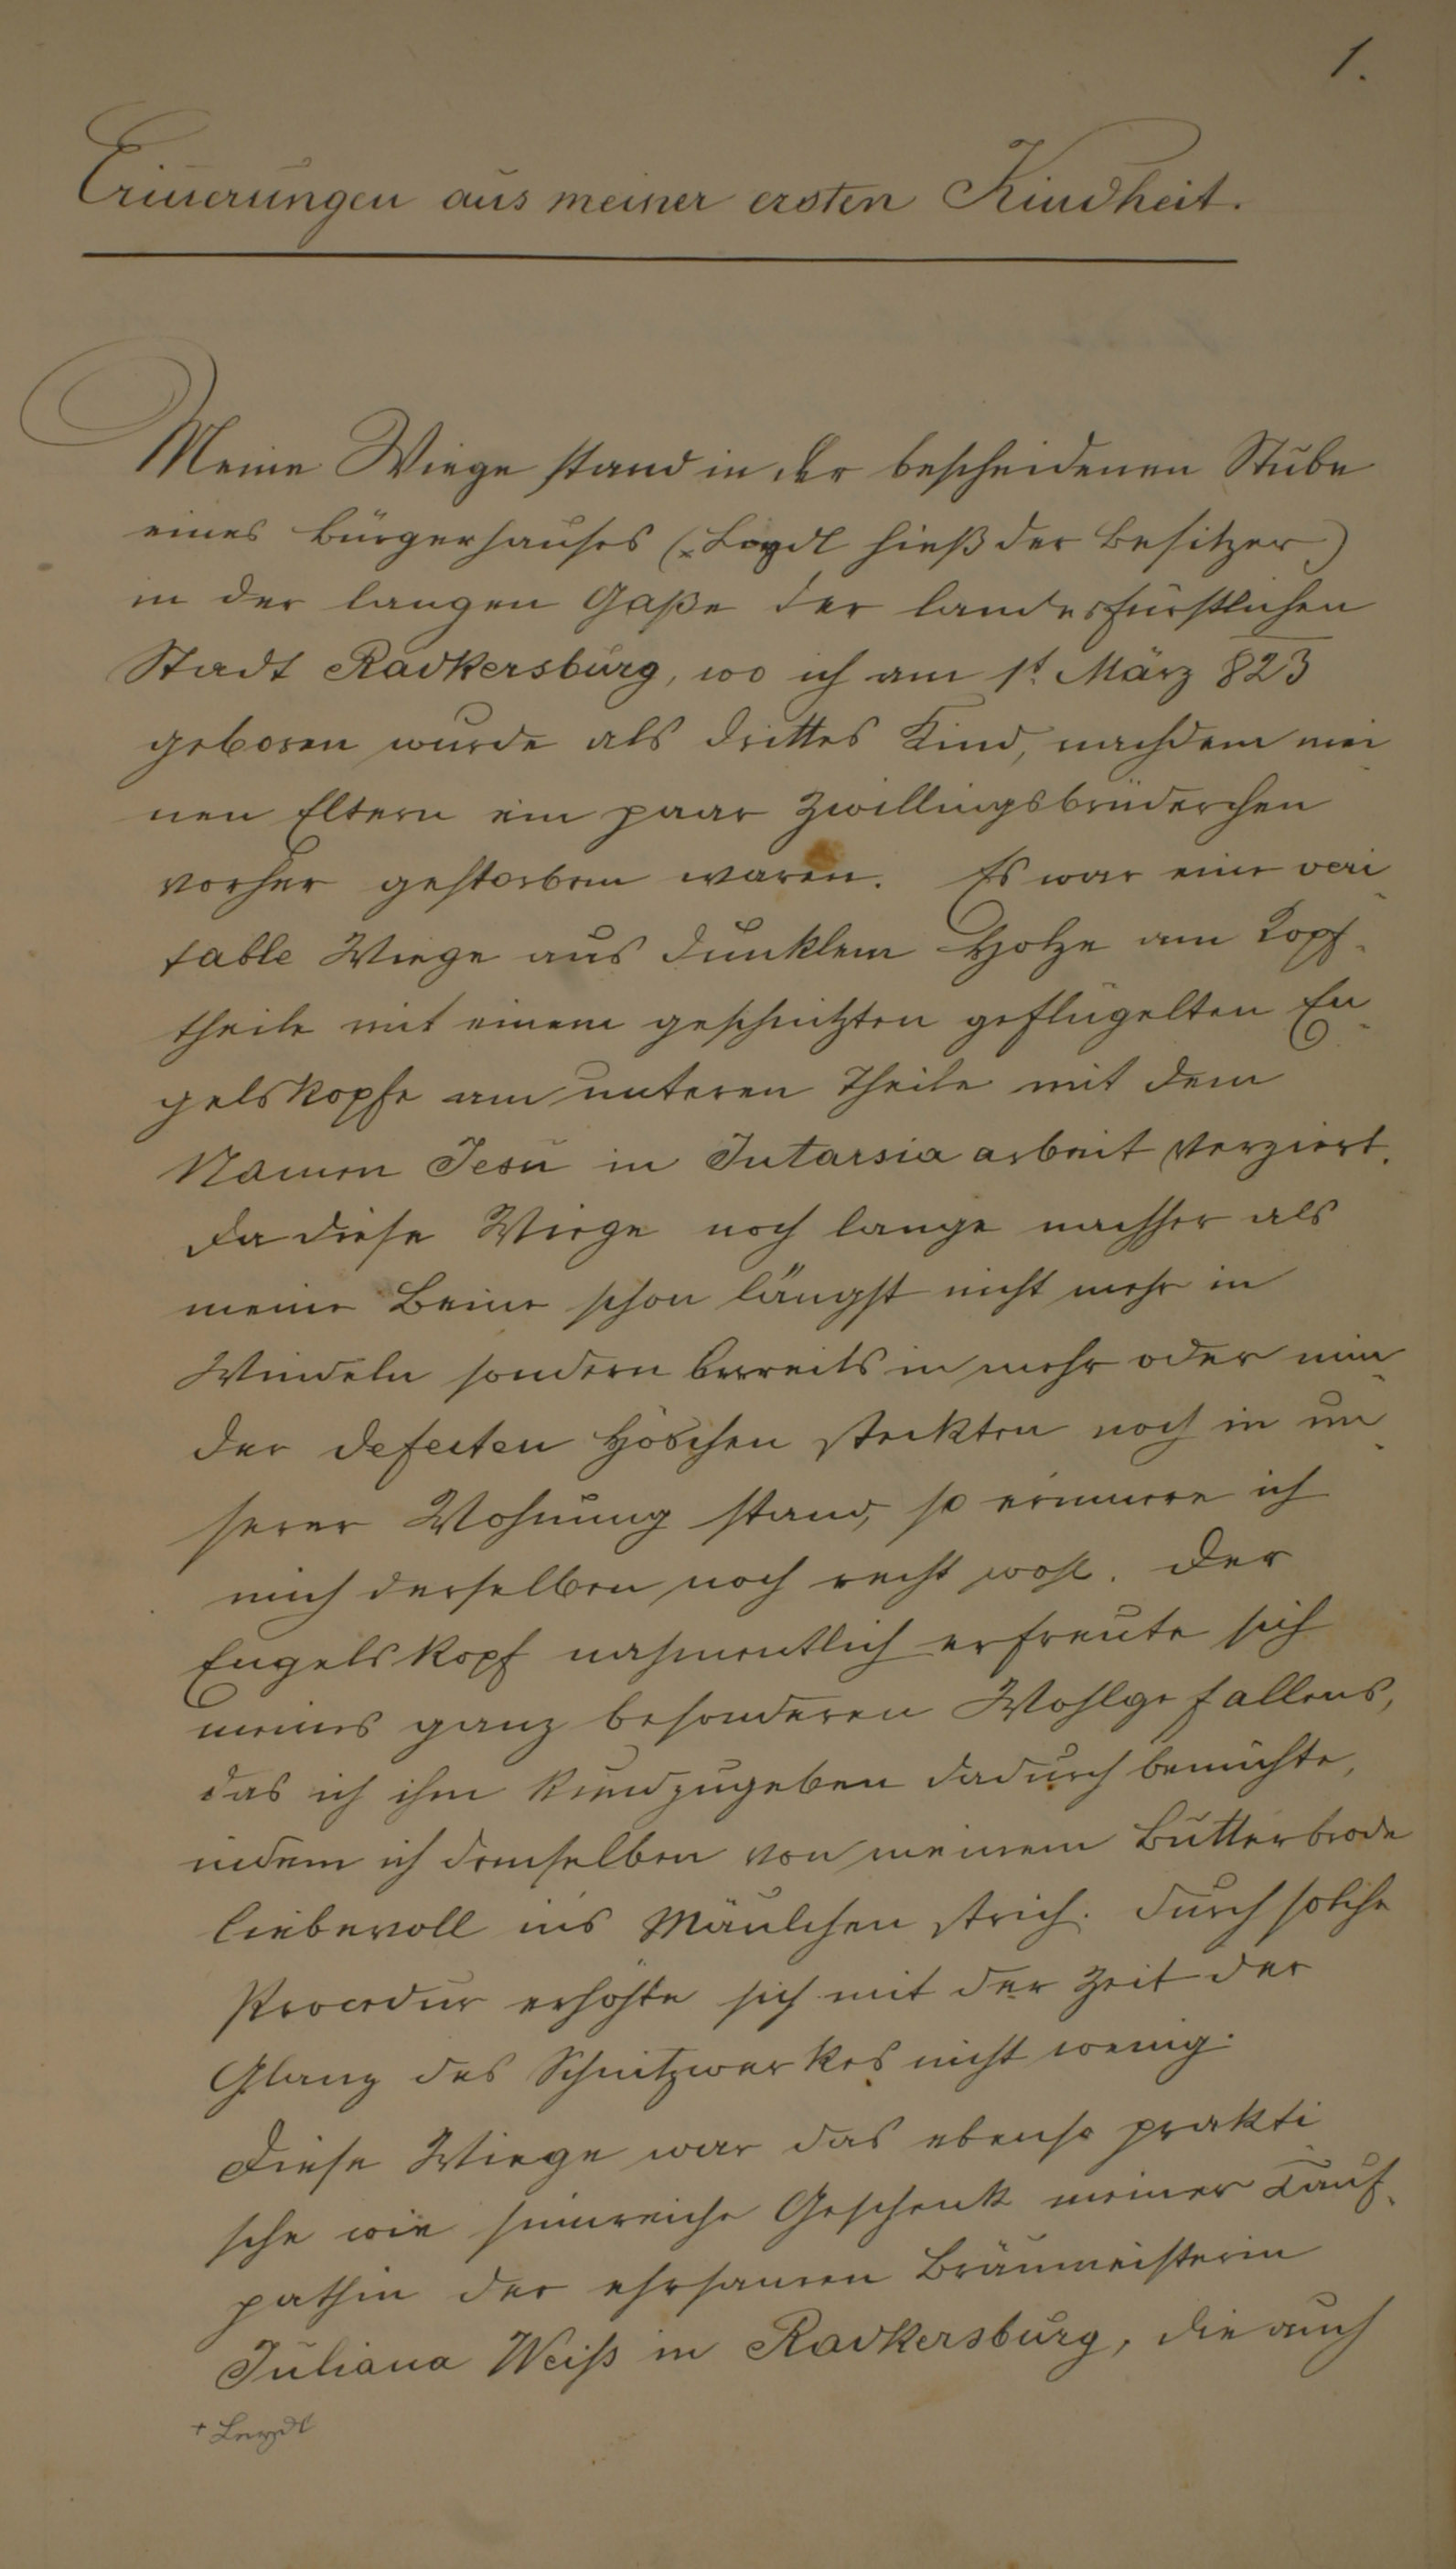 1.
Erinerungen aus meiner ersten Kindheit.
Meine Wiege stand in der bescheidenen Stube
eines Bürgerhauses (x Loydl hieß der Besitzer)
in der langen Gaße der landesfürstlichen
Stadt Radkersburg, wo ich am 1t. März 823
geboren wurde als drittes Kind, nachdem mei
nen Eltern ein paar Zwillingsbrüderchen
vorher gestorben waren. Es war eine veri
table Wiege aus dunklem Holze am Kopf-
theile mit einem geschnitzten geflügelten En-
gelskopfe am unteren Theile mit dem
Namen Jesu in Intarsia arbeit verziert.
Da diese Wiege noch lange nachher als
meine Beine schon längst nicht mehr in
Windeln sondern bereits in mehr oder min-
der defecten Höschen steckten noch in un-
serer Wohnung stand, so erinnere ich
mich derselben noch recht wohl. Der
Engelskopf nahmentlich erfreute sich
meines ganz besonderen Wohlgefallens,
das ich ihm kundzugeben dadurch bemühte,
indem ich demselben von meinem Butterbrode
liebevoll ins Mäulchen strich. Durch solche
Procedur erhöhte sich mit der Zeit der
Glanz des Schnitzwerkes nicht wenig.
Diese Wiege war das ebenso prakti
sche wie sinnreiche Geschenk meiner Tauf-
pathin der ehrsamen Bräumeisterin
Juliana Weiß in Radkersburg, die auch
+ Leydl